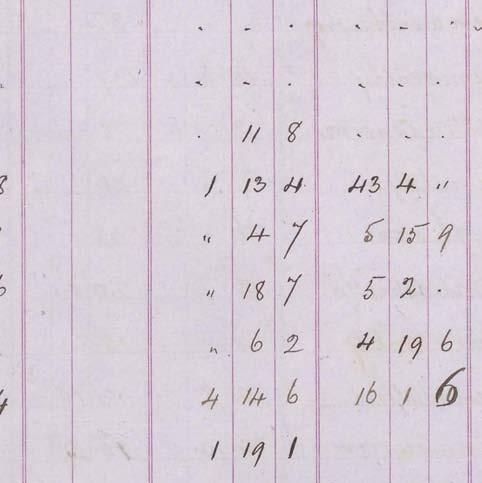 . - . . - .
. - . . - .
. 11 8 . . .
8 1 13 4 43 4 "
" 4 7 5 15 9
6 " 18 7 5 2 .
" 6 2 4 19 6
4 4 14 6 16 1 6
1 19 1